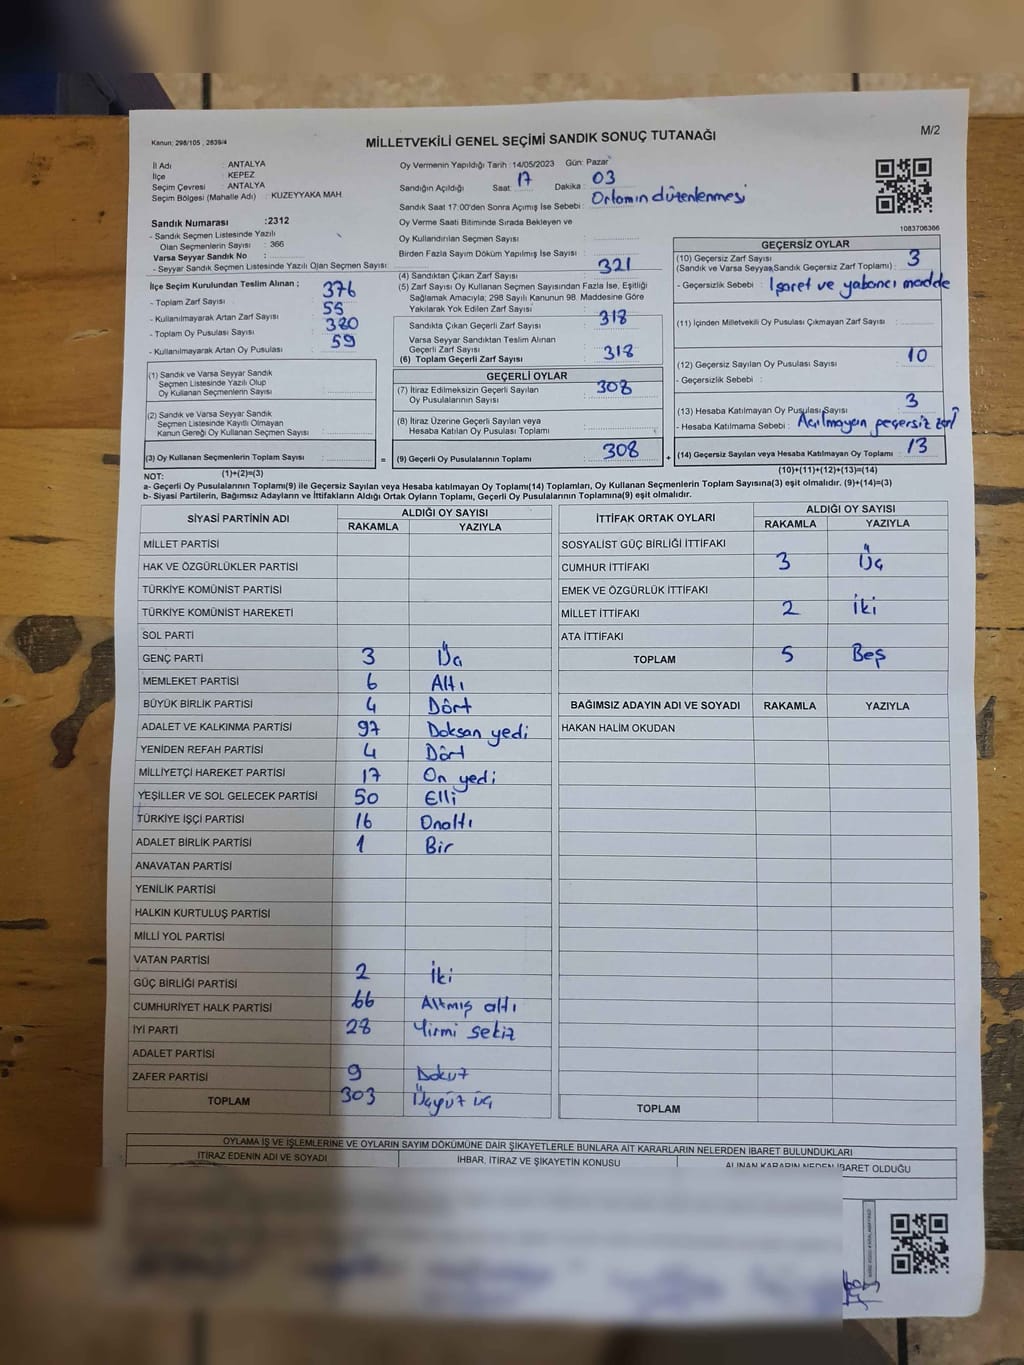 Kanun: 298/105 , 2839/4
MİLLETVEKİLİ GENEL SEÇİMİ SANDIK SONUÇ TUTANAĞI
M/2
İl Adı : ANTALYA
İlçe : KEPEZ
Seçim Çevresi : ANTALYA
Seçim Bölgesi (Mahalle Adı) : KUZEYYAKA MAH.
Oy Vermenin Yapıldığı Tarih :14/05/2023 Gün: Pazar
Sandığın Açıldığı Saat : 17 Dakika : 03
Sandık Saat 17:00'den Sonra Açımış İse Sebebi : Ortamın düzenlenmesi
Sandık Numarası :2312
- Sandık Seçmen Listesinde Yazılı
Olan Seçmenlerin Sayısı : 366
Varsa Seyyar Sandık No :
- Seyyar Sandık Seçmen Listesinde Yazılı Olan Seçmen Sayısı:
Oy Verme Saati Bitiminde Sırada Bekleyen ve
Oy Kullandırılan Seçmen Sayısı :
Birden Fazla Sayım Döküm Yapılmış İse Sayısı :
1083706366
İlçe Seçim Kurulundan Teslim Alınan ;
- Toplam Zarf Sayısı : 376
- Kullanılmayarak Artan Zarf Sayısı : 55
- Toplam Oy Pusulası Sayısı : 380
- Kullanılmayarak Artan Oy Pusulası : 59
(4) Sandıktan Çıkan Zarf Sayısı : 321
(5) Zarf Sayısı Oy Kullanan Seçmen Sayısından Fazla İse, Eşitliği
Sağlamak Amacıyla; 298 Sayılı Kanunun 98. Maddesine Göre
Yakılarak Yok Edilen Zarf Sayısı :
Sandıkta Çıkan Geçerli Zarf Sayısı : 318
Varsa Seyyar Sandıktan Teslim Alınan
Geçerli Zarf Sayısı :
(6) Toplam Geçerli Zarf Sayısı : 318
GEÇERLİ OYLAR
(7) İtiraz Edilmeksizin Geçerli Sayılan
Oy Pusulalarının Sayısı : 308
(8) İtiraz Üzerine Geçerli Sayılan veya
Hesaba Katılan Oy Pusulası Toplamı :
(9) Geçerli Oy Pusulalarının Toplamı : 308
GEÇERSİZ OYLAR
(10) Geçersiz Zarf Sayısı
(Sandık ve Varsa Seyyar Sandık Geçersiz Zarf Toplamı) : 3
- Geçersizlik Sebebi : İşaret ve yabancı madde
(11) İçinden Milletvekili Oy Pusulası Çıkmayan Zarf Sayısı :
(12) Geçersiz Sayılan Oy Pusulası Sayısı : 10
- Geçersizlik Sebebi :
(13) Hesaba Katılmayan Oy Pusulası Sayısı : 3
- Hesaba Katılmama Sebebi : Açılmayan geçersiz zarf
(14) Geçersiz Sayılan veya Hesaba Katılmayan Oy Toplamı : 13
(10)+(11)+(12)+(13)=(14)
(1) Sandık ve Varsa Seyyar Sandık
Seçmen Listesinde Yazılı Olup
Oy Kullanan Seçmenlerin Sayısı :
(2) Sandık ve Varsa Seyyar Sandık
Seçmen Listesinde Kayıtlı Olmayan
Kanun Gereği Oy Kullanan Seçmen Sayısı :
(3) Oy Kullanan Seçmenlerin Toplam Sayısı :
=
+
(1)+(2)=(3)
NOT:
a- Geçerli Oy Pusulalarının Toplamı(9) ile Geçersiz Sayılan veya Hesaba katılmayan Oy Toplamı(14) Toplamları, Oy Kullanan Seçmenlerin Toplam Sayısına(3) eşit olmalıdır. (9)+(14)=(3)
b- Siyasi Partilerin, Bağımsız Adayların ve İttifakların Aldığı Ortak Oyların Toplamı, Geçerli Oy Pusulalarının Toplamına(9) eşit olmalıdır.
SİYASİ PARTİNİN ADI ALDIĞI OY SAYISI
RAKAMLA YAZIYLA
MİLLET PARTİSİ
HAK VE ÖZGÜRLÜKLER PARTİSİ
TÜRKİYE KOMÜNİST PARTİSİ
TÜRKİYE KOMÜNİST HAREKETİ
SOL PARTİ
GENÇ PARTİ 3 Üç
MEMLEKET PARTİSİ 6 Altı
BÜYÜK BİRLİK PARTİSİ 4 Dört
ADALET VE KALKINMA PARTİSİ 97 Doksan yedi
YENİDEN REFAH PARTİSİ 4 Dört
MİLLİYETÇİ HAREKET PARTİSİ 17 On yedi
YEŞİLLER VE SOL GELECEK PARTİSİ 50 Elli
TÜRKİYE İŞÇİ PARTİSİ 16 Onaltı
ADALET BİRLİK PARTİSİ 1 Bir
ANAVATAN PARTİSİ
YENİLİK PARTİSİ
HALKIN KURTULUŞ PARTİSİ
MİLLİ YOL PARTİSİ
VATAN PARTİSİ
GÜÇ BİRLİĞİ PARTİSİ 2 İki
CUMHURİYET HALK PARTİSİ 66 Altmış altı
İYİ PARTİ 28 Yirmi sekiz
ADALET PARTİSİ
ZAFER PARTİSİ 9 Dokuz
TOPLAM 303 Üçyüz üç
İTTİFAK ORTAK OYLARI ALDIĞI OY SAYISI
RAKAMLA YAZIYLA
SOSYALİST GÜÇ BİRLİĞİ İTTİFAKI
CUMHUR İTTİFAKI 3 Üç
EMEK VE ÖZGÜRLÜK İTTİFAKI
MİLLET İTTİFAKI 2 İki
ATA İTTİFAKI
TOPLAM 5 Beş
BAĞIMSIZ ADAYIN ADI VE SOYADI RAKAMLA YAZIYLA
HAKAN HALİM OKUDAN
TOPLAM
OYLAMA İŞ VE İŞLEMLERİNE VE OYLARIN SAYIM DÖKÜMÜNE DAİR ŞİKAYETLERLE BUNLARA AİT KARARLARIN NELERDEN İBARET BULUNDUKLARI
İTİRAZ EDENİN ADI VE SOYADI İHBAR, İTİRAZ VE ŞİKAYETİN KONUSU ALINAN KARARIN NEDEN İBARET OLDUĞU